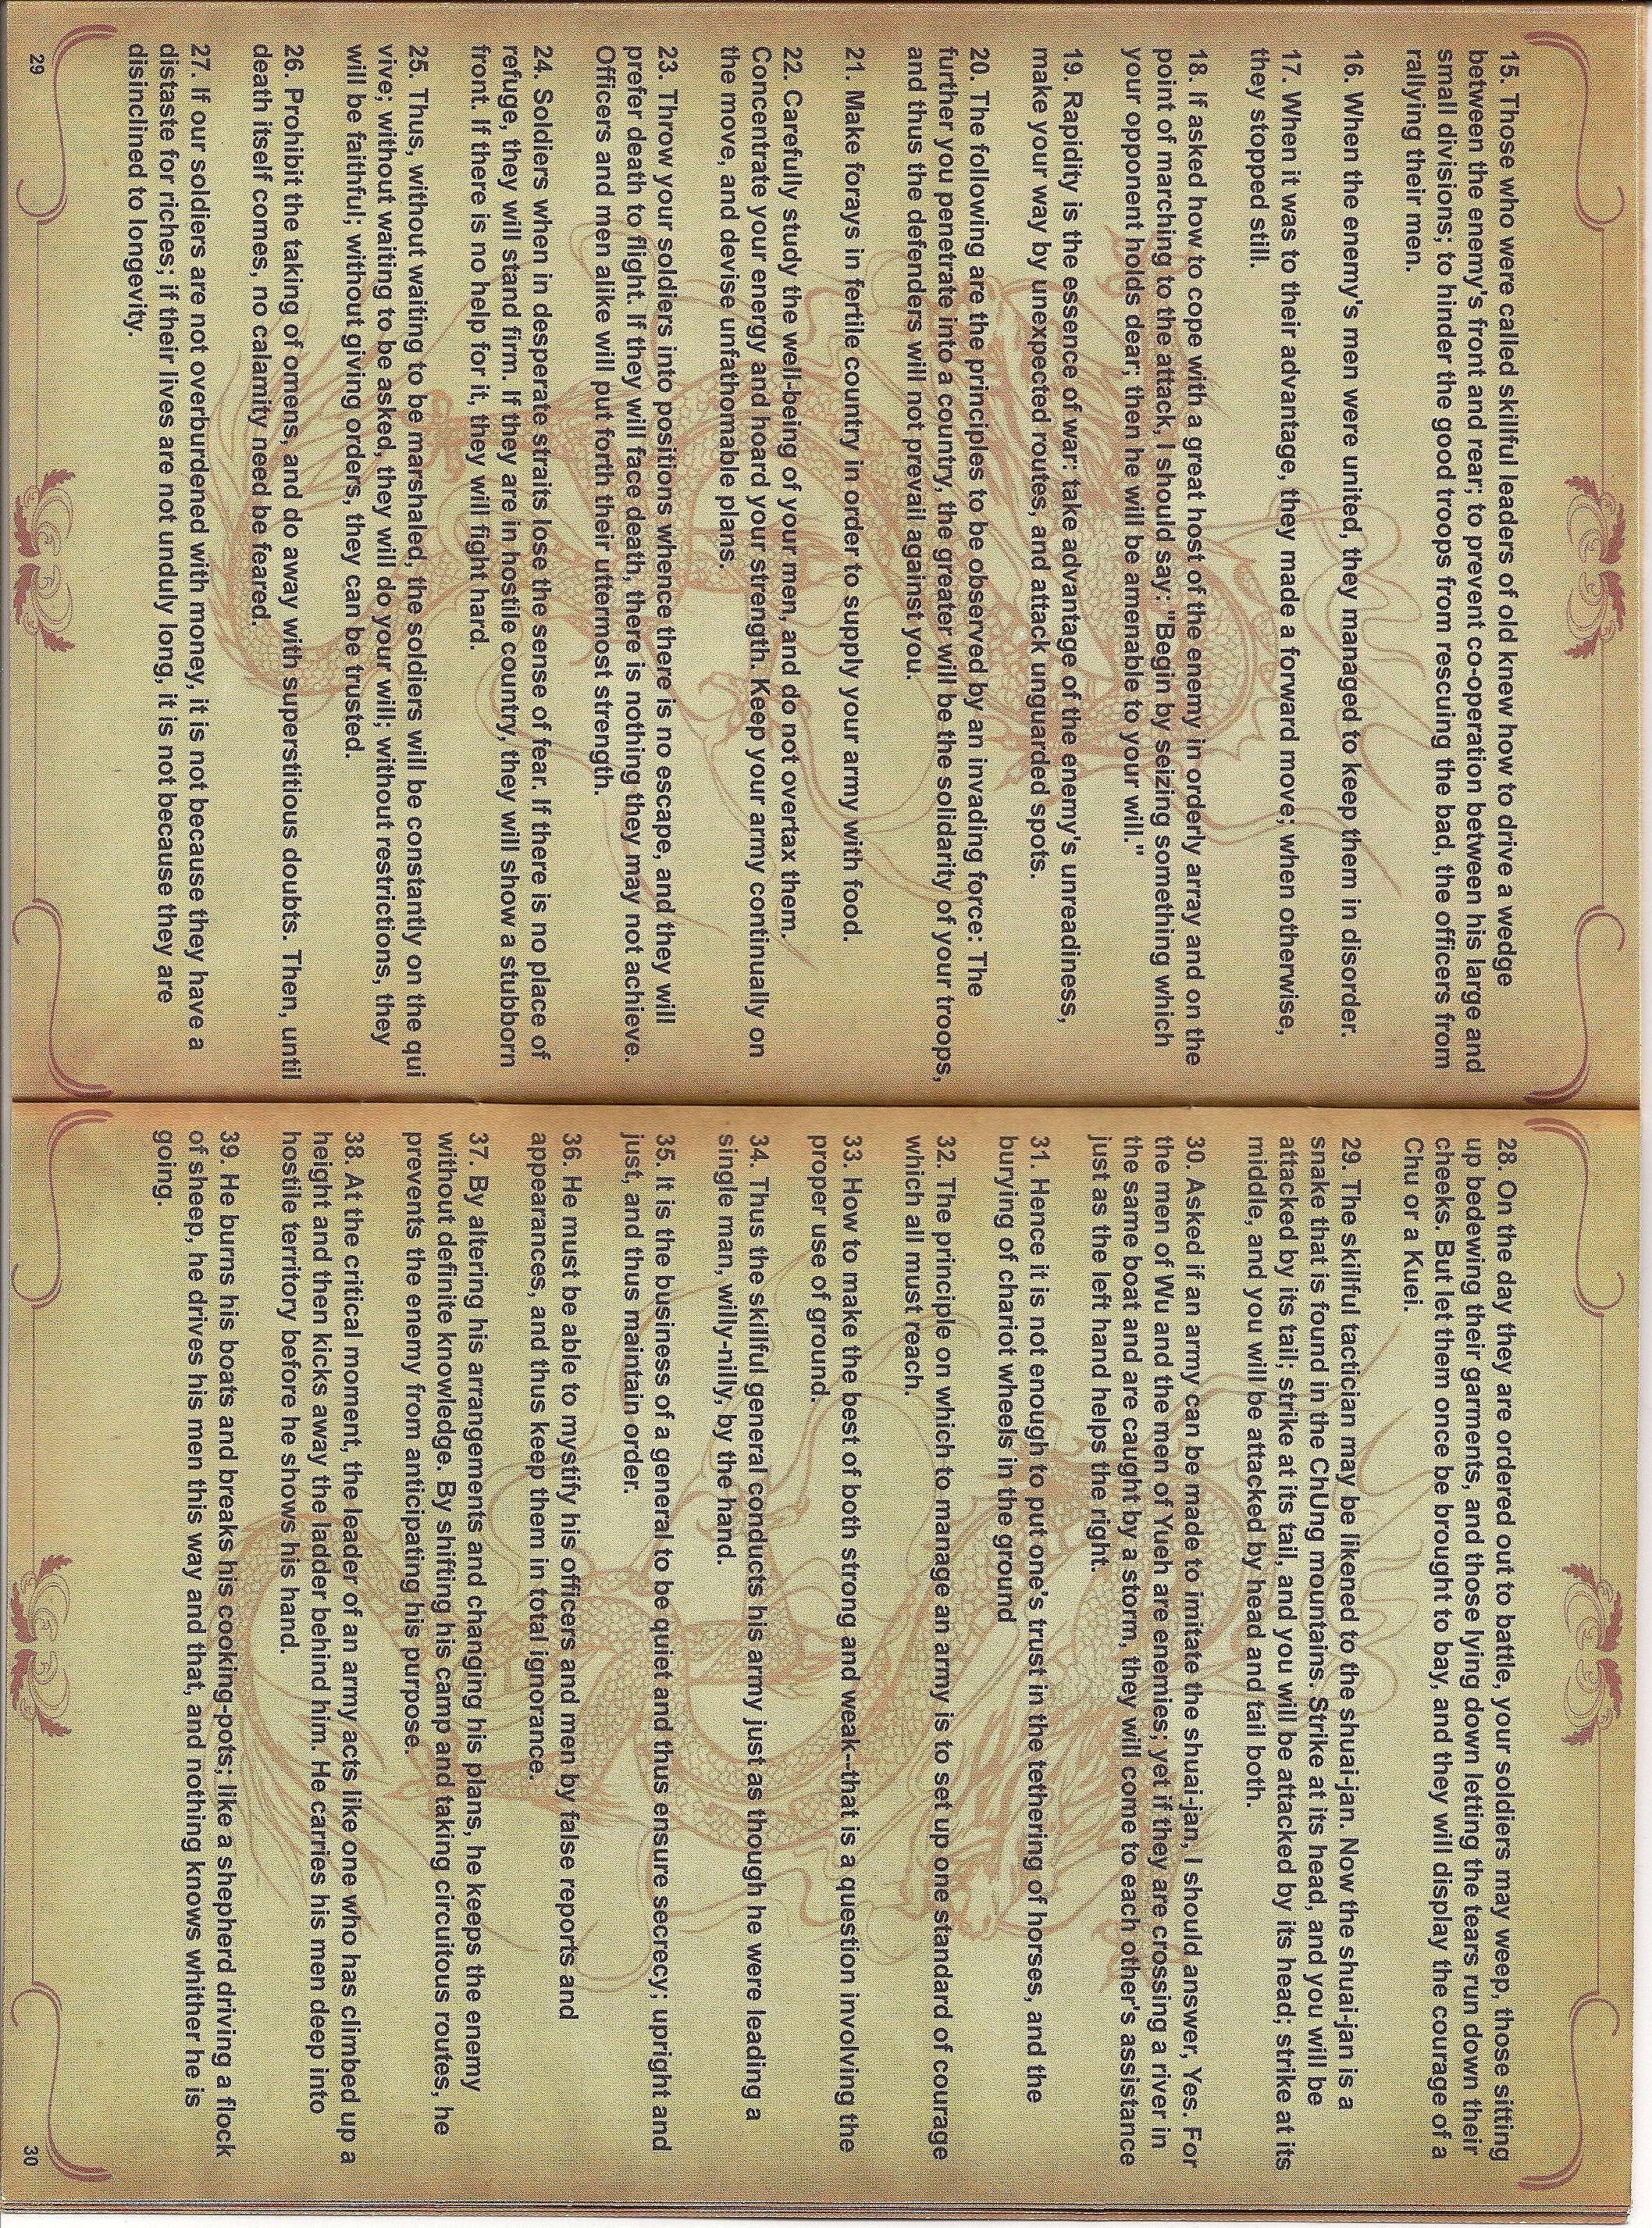 15. Those who were called skillful leaders of old knew how to drive a wedge
between the enemy's front and rear; to prevent co-operation between his large and
small divisions; to hinder the good troops from rescuing the bad, the officers from
rallying their men.
16. When the enemy's men were united, they managed to keep them in disorder.
17. When it was to their advantage, they made a forward move; when otherwise,
they stopped still.
18. If asked how to cope with a great host of the enemy in orderly array and on the
point of marching to the attack, I should say: "Begin by seizing something which
your opponent holds dear; then he will be amenable to your will."
19. Rapidity is the essence of war: take advantage of the enemy's unreadiness,
make your way by unexpected routes, and attack unguarded spots.
20. The following are the principles to be observed by an invading force: The
further you penetrate into a country, the greater will be the solidarity of your troops,
and thus the defenders will not prevail against you.
21. Make forays in fertile country in order to supply your army with food.
22. Carefully study the well-being of your men, and do not overtax them.
Concentrate your energy and hoard your strength. Keep your army continually on
the move, and devise unfathomable plans.
23. Throw your soldiers into positions whence there is no escape, and they will
prefer death to flight. If they will face death, there is nothing they may not achieve.
Officers and men alike will put forth their uttermost strength.
24. Soldiers when in desperate straits lose the sense of fear. If there is no place of
refuge, they will stand firm. If they are in hostile country, they will show a stubborn
front. If there is no help for it, they will fight hard.
25. Thus, without waiting to be marshaled, the soldiers will be constantly on the qui
vive; without waiting to be asked, they will do your will; without restrictions, they
will be faithful; without giving orders, they can be trusted.
26. Prohibit the taking of omens, and do away with superstitious doubts. Then, until
death itself comes, no calamity need be feared.
27. If our soldiers are not overburdened with money, it is not because they have a
distaste for riches; if their lives are not unduly long, it is not because they are
disinclined to longevity.
29
28. On the day they are ordered out to battle, your soldiers may weep, those sitting
up bedewing their garments, and those lying down letting the tears run down their
cheeks. But let them once be brought to bay, and they will display the courage of a
Chu or a Kuei.
29. The skillful tactician may be likened to the shuai-jan. Now the shuai-jan is a
snake that is found in the ChUng mountains. Strike at its head, and you will be
attacked by its tail; strike at its tail, and you will be attacked by its head; strike at its
middle, and you will be attacked by head and tail both.
30. Asked if an army can be made to imitate the shuai-jan, I should answer, Yes. For
the men of Wu and the men of Yueh are enemies; yet if they are crossing a river in
the same boat and are caught by a storm, they will come to each other's assistance
just as the left hand helps the right.
31. Hence it is not enough to put one's trust in the tethering of horses, and the
burying of chariot wheels in the ground
32. The principle on which to manage an army is to set up one standard of courage
which all must reach.
33. How to make the best of both strong and weak--that is a question involving the
proper use of ground.
34. Thus the skilful general conducts his army just as though he were leading a
single man, willy-nilly, by the hand.
35. It is the business of a general to be quiet and thus ensure secrecy; upright and
just, and thus maintain order.
36. He must be able to mystify his officers and men by false reports and
appearances, and thus keep them in total ignorance.
37. By altering his arrangements and changing his plans, he keeps the enemy
without definite knowledge. By shifting his camp and taking circuitous routes, he
prevents the enemy from anticipating his purpose.
38. At the critical moment, the leader of an army acts like one who has climbed up a
height and then kicks away the ladder behind him. He carries his men deep into
hostile territory before he shows his hand.
39. He burns his boats and breaks his cooking-pots; like a shepherd driving a flock
of sheep, he drives his men this way and that, and nothing knows whither he is
going.
30